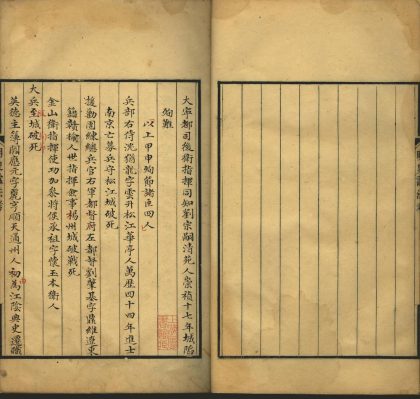 大寧都司後衛指揮同知劉宗嗣清苑人崇禎十七年城陷
殉難
以上甲申殉節諸臣四人
兵部右侍沈猶龍字雲升松江華亭人萬歷四十四年進士
南京亡募兵守松江城破死
援勦團練總兵官右軍都督府左都督劉肇基字鼎維遼東
籍贛榆人世指揮僉事楊州城破戰死
金山衛指揮使功加參將侯承祖字懷玉本衛人
大兵至城破死
英德主簿閻應元字麗亨順天通州人初為江陰典史遷職